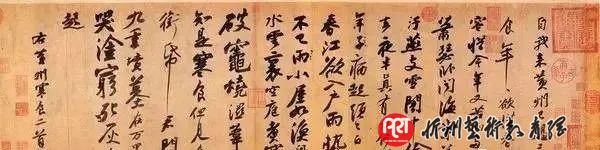 自我來黃州已過三
食年年欲惜
容惜今年又苦
蕭瑟臥聞海
汙燕支雪闇中偷
去夜半真有力
年子病起頭已白
春江欲入戶雨勢
不已雨小屋如漁
水雲裏空庖煮寒
破竈燒濕葦
知是寒食但見烏
銜帋君門
九重墳墓在万里
哭塗窮死灰
起
右黃州寒食二首
ART
藝術家